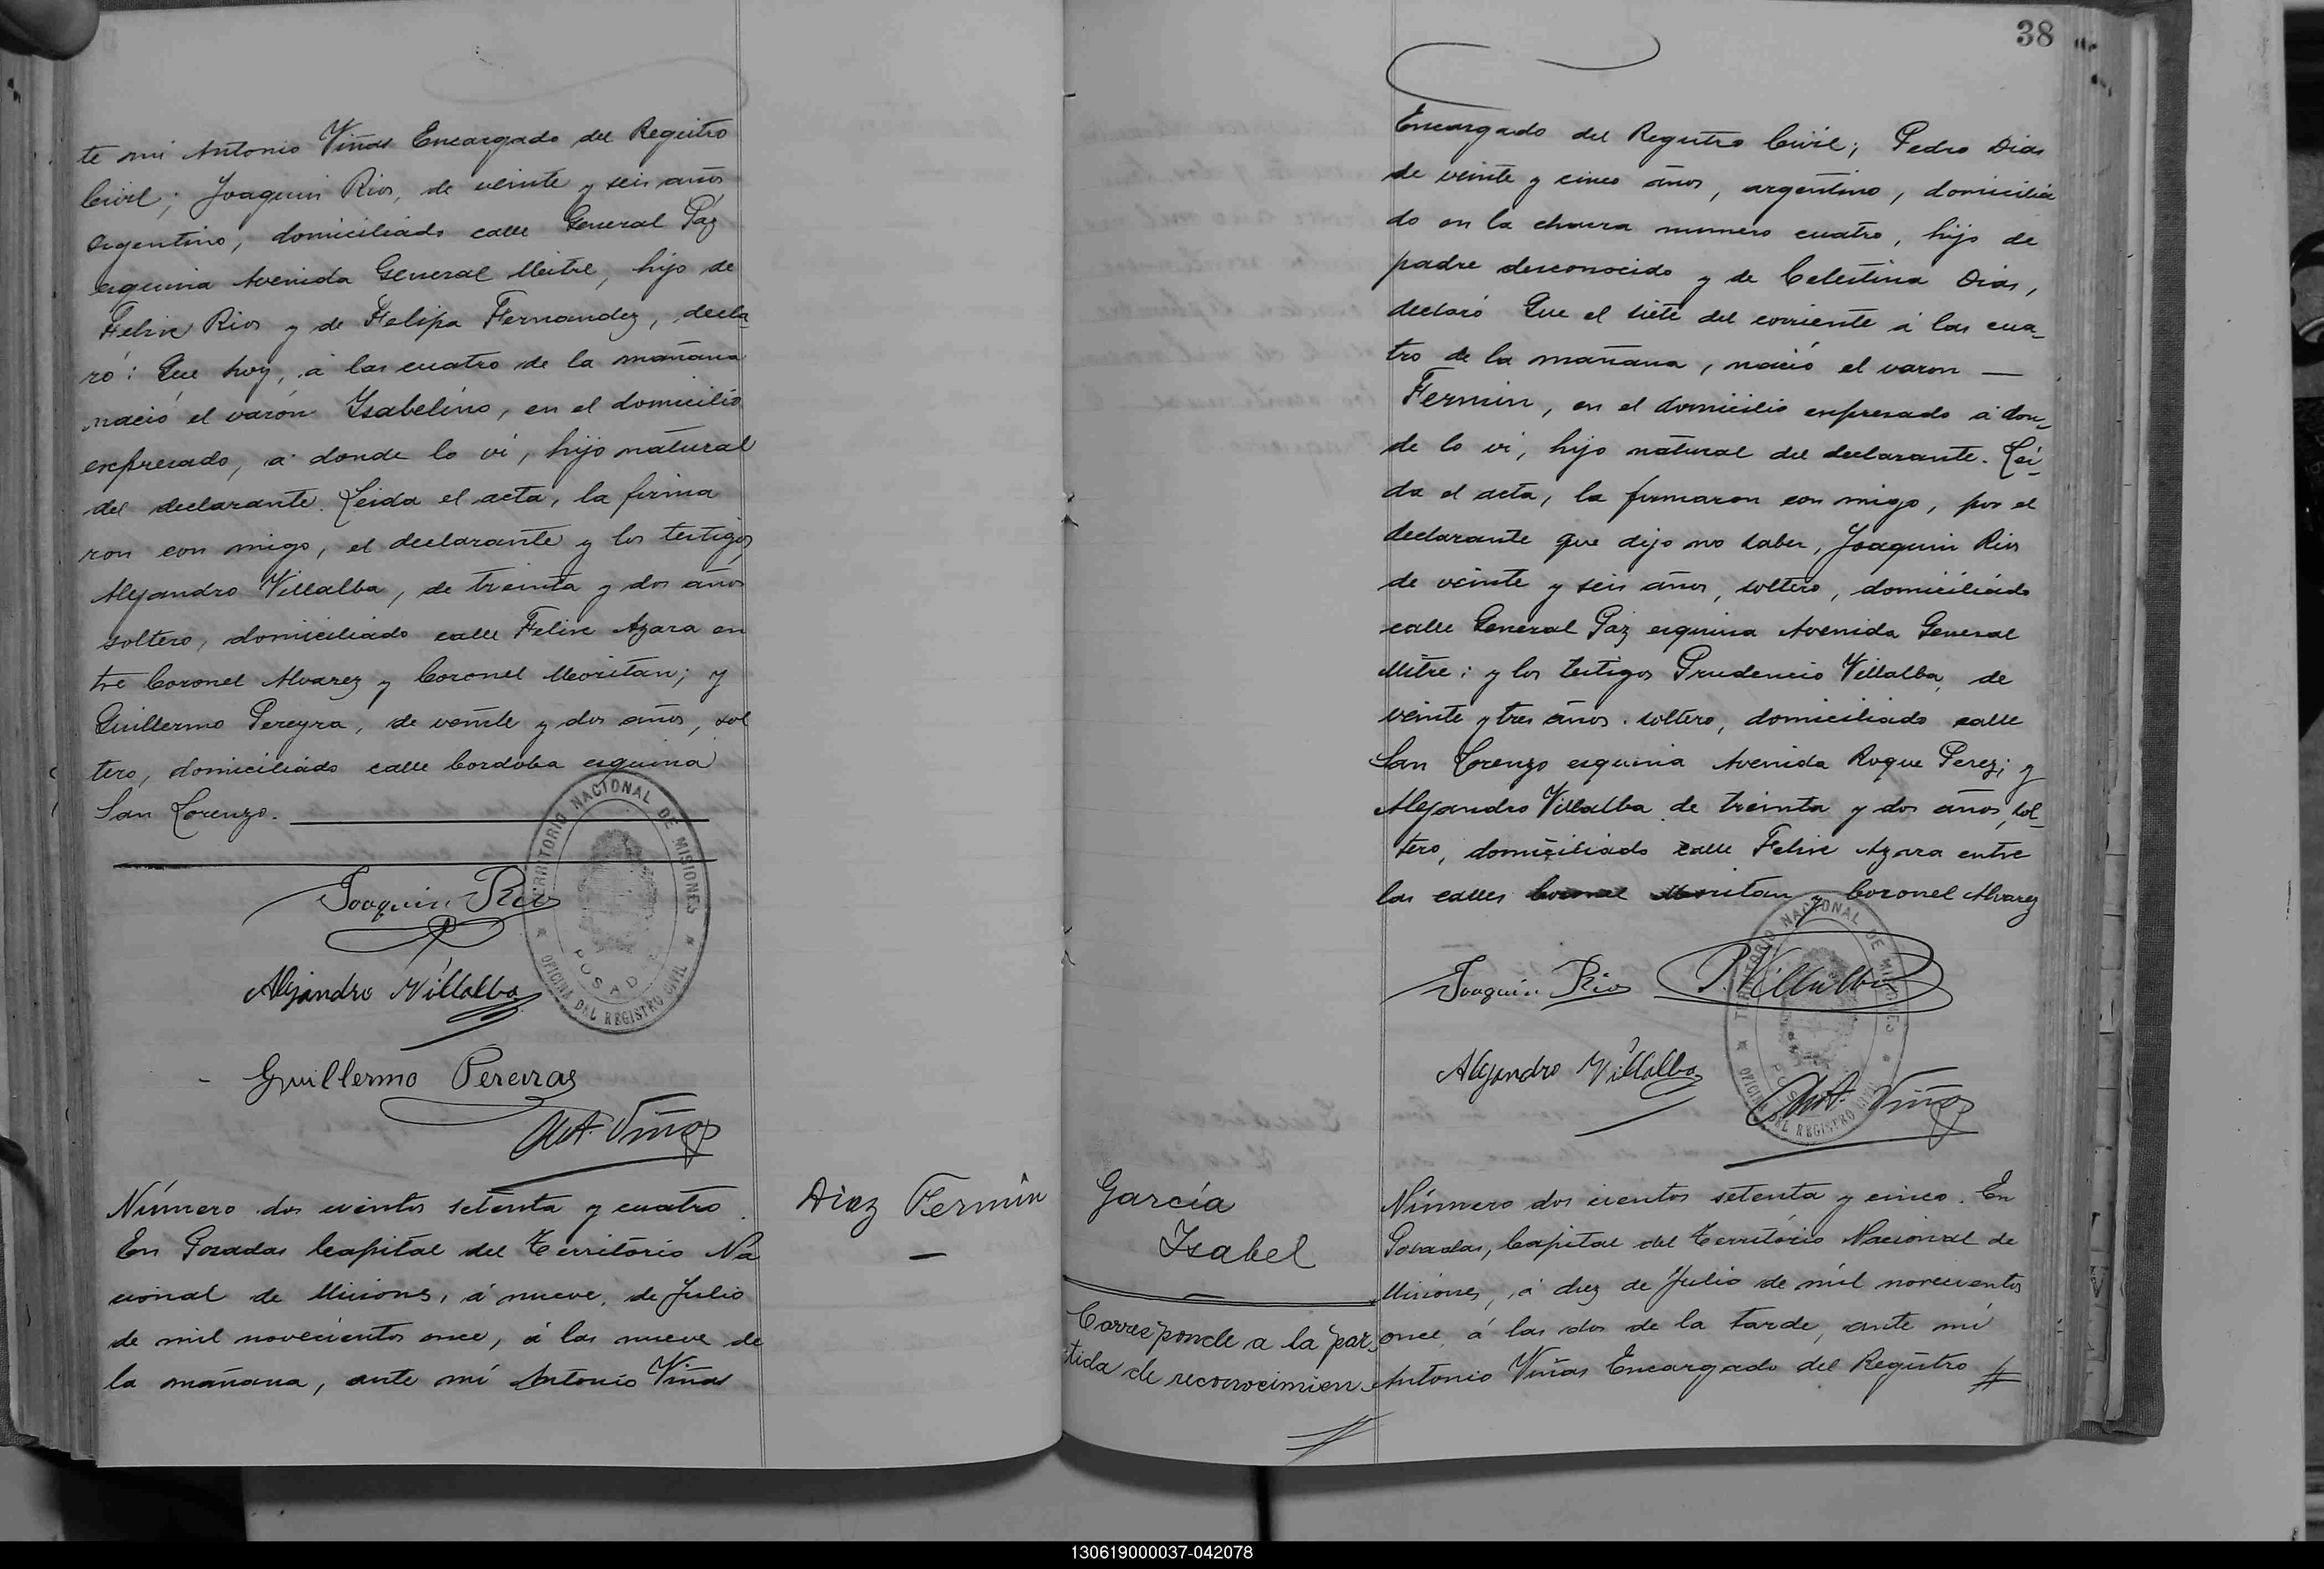 te mi Antonio Viñas Encargado del Registro
Civil; Joaquin Rios, de veinte y seis años
Argentino, domiciliado calle General Páz
esquina Avenida General Mitre, hijo de
Felix Rios y de Felipa Fernandez, decla
ró: Que hoy, á las cuatro de la mañana
nació el varón Ysabelino, en el domicilio
expresado, á donde lo vi, hijo natural
del declarante. Leida el acta, la firma
ron con migo, el declarante y los testigos
Alejandro Villalba, de treinta y dos años
soltero, domiciliado calle Felix Azara en
tre Coronel Alvarez y Coronel Moritan; y
Guillermo Pereyra, de veinte y dos años, sol
tero, domiciliado calle Cordoba esquina
San Lorenzo.
TERRITORIO NACIONAL DE MISIONES
POSADAS
OFICINA DEL REGISTRO CIVIL
Joaquin Rios
Alejandro Villalba
Guillermo Pereiras
Ant. Viñas
Número dos cientos setenta y cuatro.
En Posadas Capital del Territorio Na
cional de Misiones, á nueve, de Julio
de mil novecientos once, á las nueve de
la mañana, ante mí Antonio Viñas
Diaz Fermin
38
Encargado del Registro Civil; Pedro Dias
de veinte y cinco años, argentino, domicilia
do en la chacra numero cuatro, hijo de
padre desconocido y de Celestina Dias,
declaró Que el siete del corriente á las cua
tro de la mañana, nació el varon
Fermin, en el domicilio expresado á don
de lo vi, hijo natural del declarante. Lei
da el acta, la firmaron con migo, por el
declarante que dijo no saber, Joaquin Rios
de veinte y seis años, soltero, domiciliado
calle General Paz esquina Avenida General
Mitre; y los testigos Prudencio Villalba, de
veinte y tres años, soltero, domiciliado calle
San Lorenzo esquina Avenida Roque Perez; y
Alejandro Villalba de treinta y dos años, sol
tero, domiciliado calle Felix Azara entre
las calles Coronel Moritan y Coronel Alvarez
Joaquin Rios P. Villalba
Alejandro Villalba
Ant. Viñas
TERRITORIO NACIONAL DE MISIONES
OFICINA DEL REGISTRO CIVIL
García
Isabel
Corresponde a la par
tida de reconocimien
Número dos cientos setenta y cinco. En
Posadas, Capital del Territorio Nacional de
Misiones, á diez de Julio de mil novecientos
once á las dos de la tarde, ante mí
Antonio Viñas Encargado del Registro
130619000037-042078